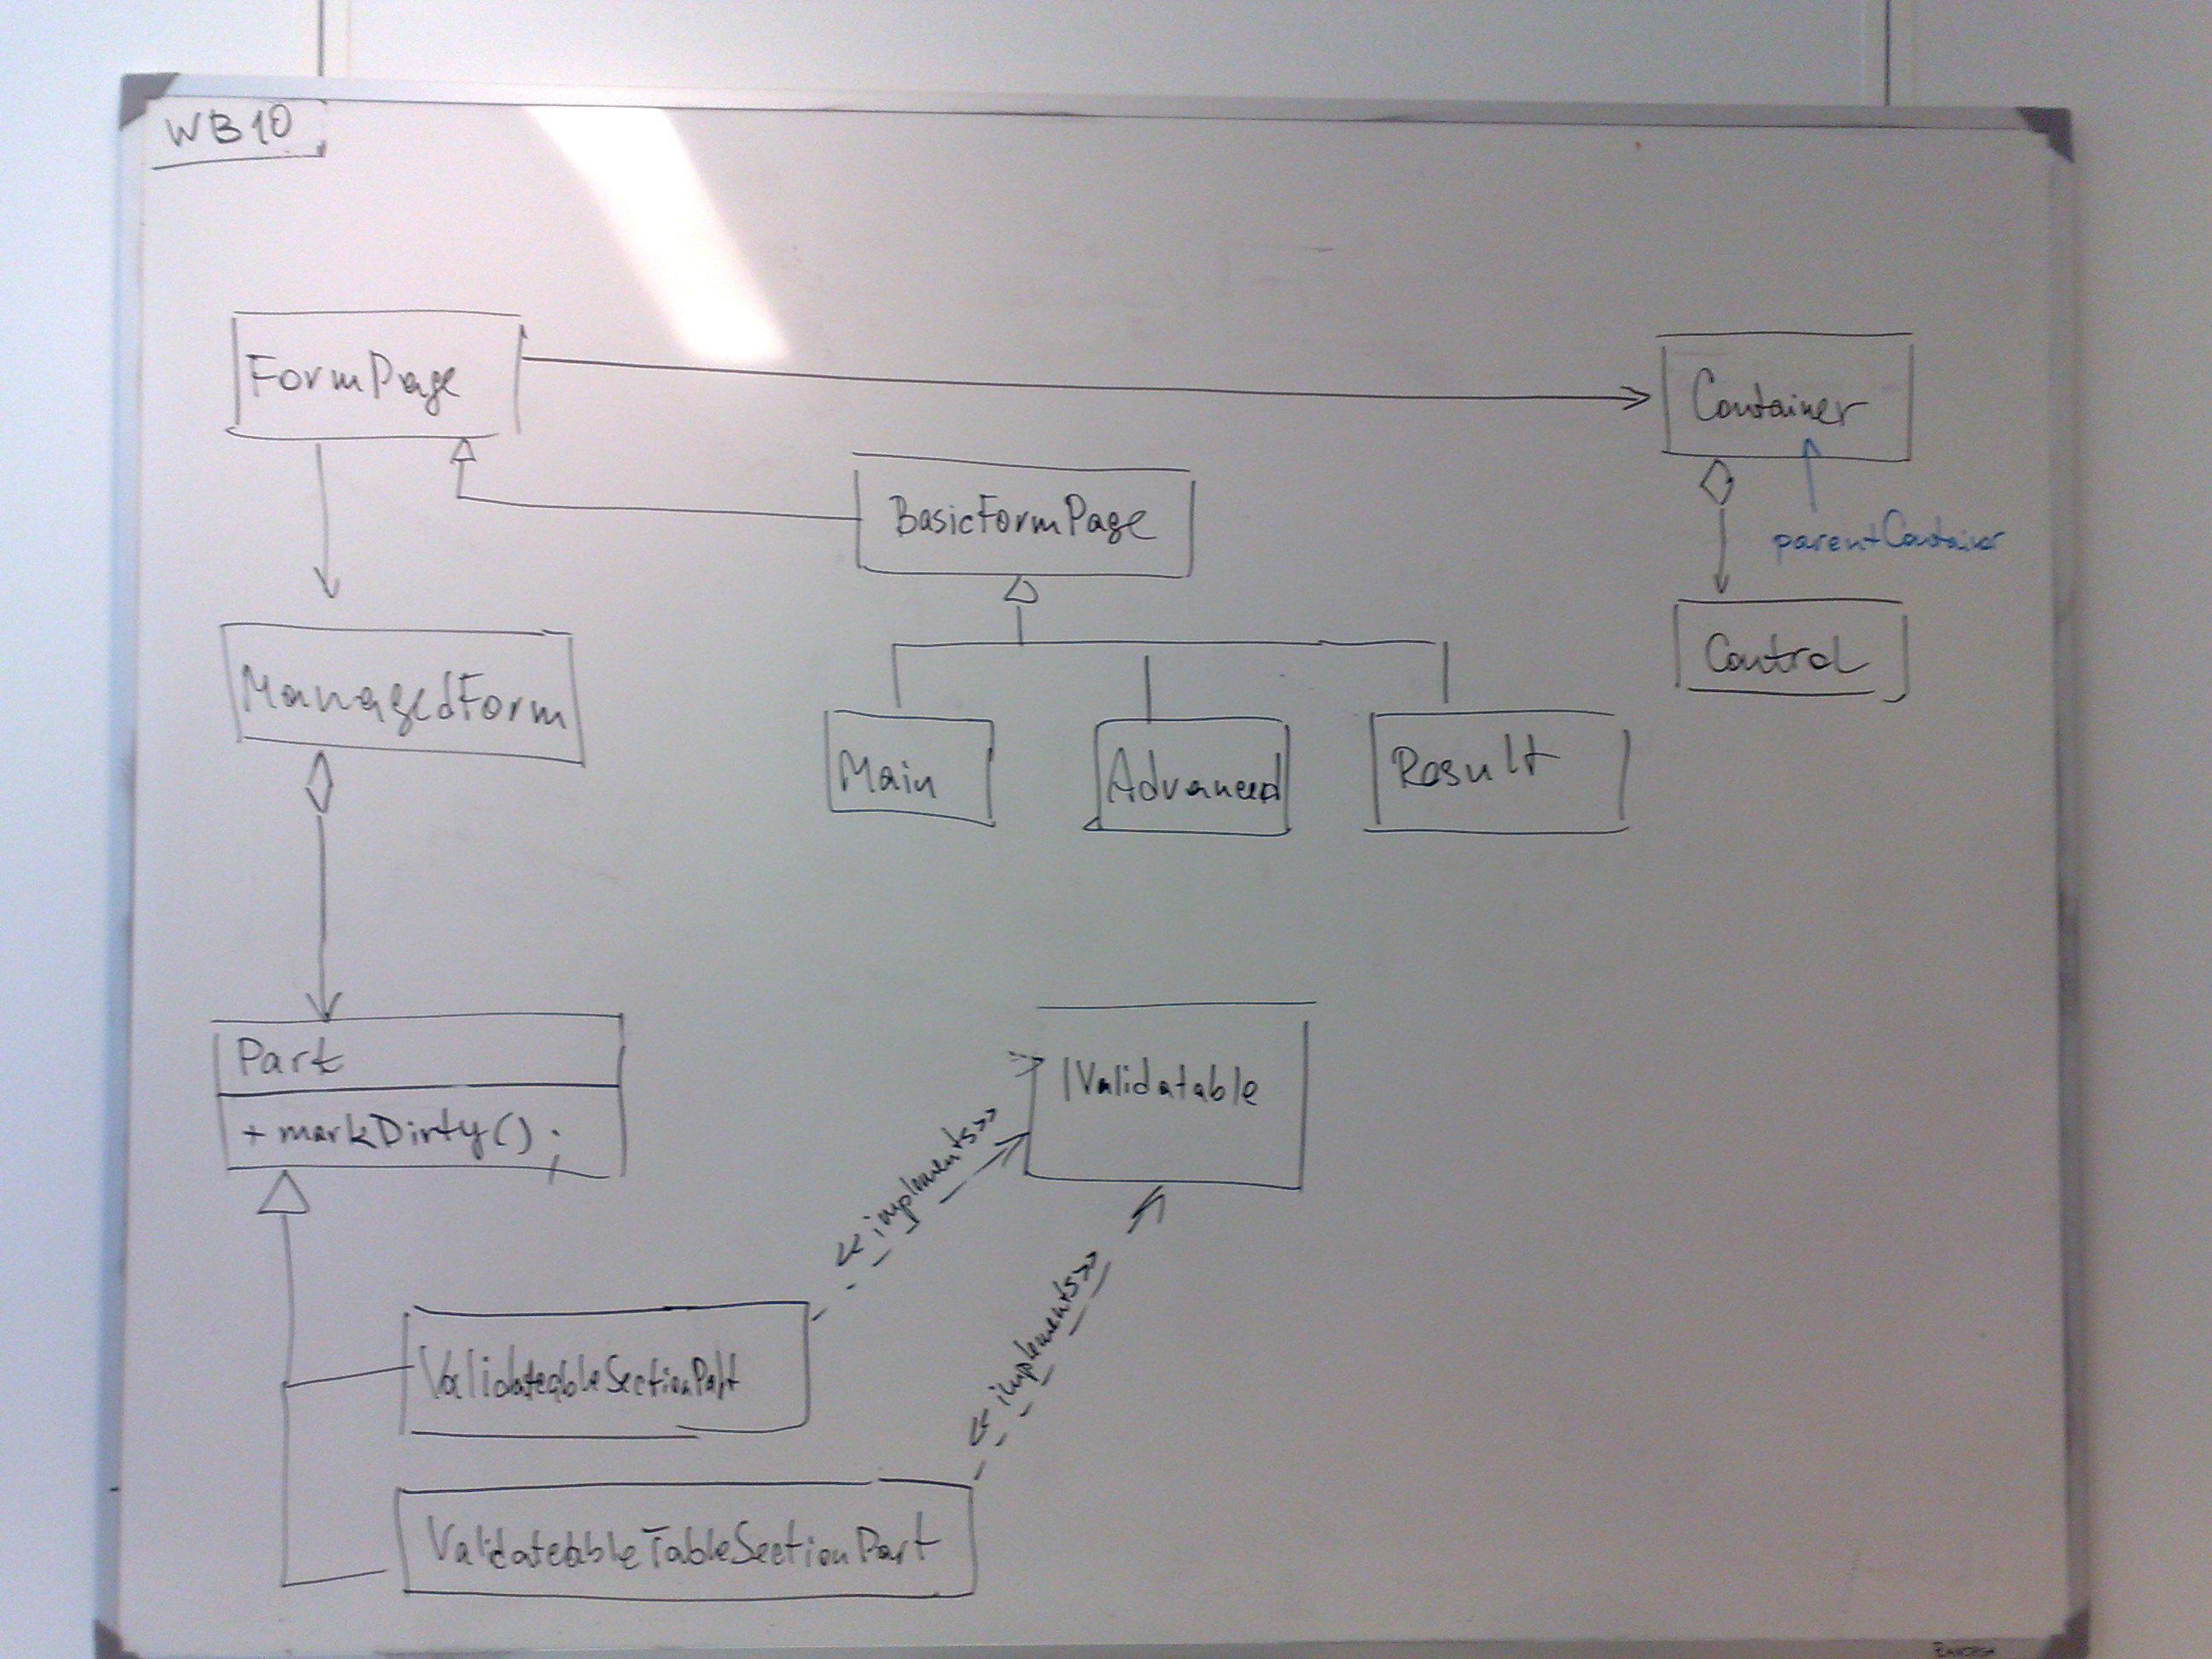 WB10
FormPage
Container
BasicFormPage
parentContainer
Control
ManagedForm
Main
Advanced
Result
Part
+ markDirty();
IValidatable
<<implements>>
<<implements>>
ValidateableSectionPart
ValidateableTableSectionPart